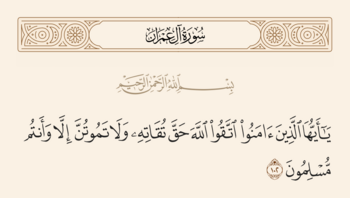 سُورَةُ آلِ عِمْرَانَ
بِسْمِ ٱللَّهِ ٱلرَّحْمَٰنِ ٱلرَّحِيمِ
يَـٰٓأَيُّهَا ٱلَّذِينَ ءَامَنُوا۟ ٱتَّقُوا۟ ٱللَّهَ حَقَّ تُقَاتِهِۦ وَلَا تَمُوتُنَّ إِلَّا وَأَنتُم
مُّسْلِمُونَ ١٠٢